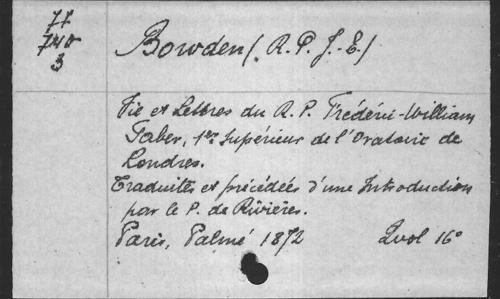 77
740
3
Bowden (R. P. J.-E.)
Vie et Lettres du R. P. Frédéric-William
Faber, 1er Supérieur de l'Oratoire de
Londres.
Traduites et précédées d'une Introduction
par le P. de Rivières.
Paris, Palmé 1872 2 vol 16°